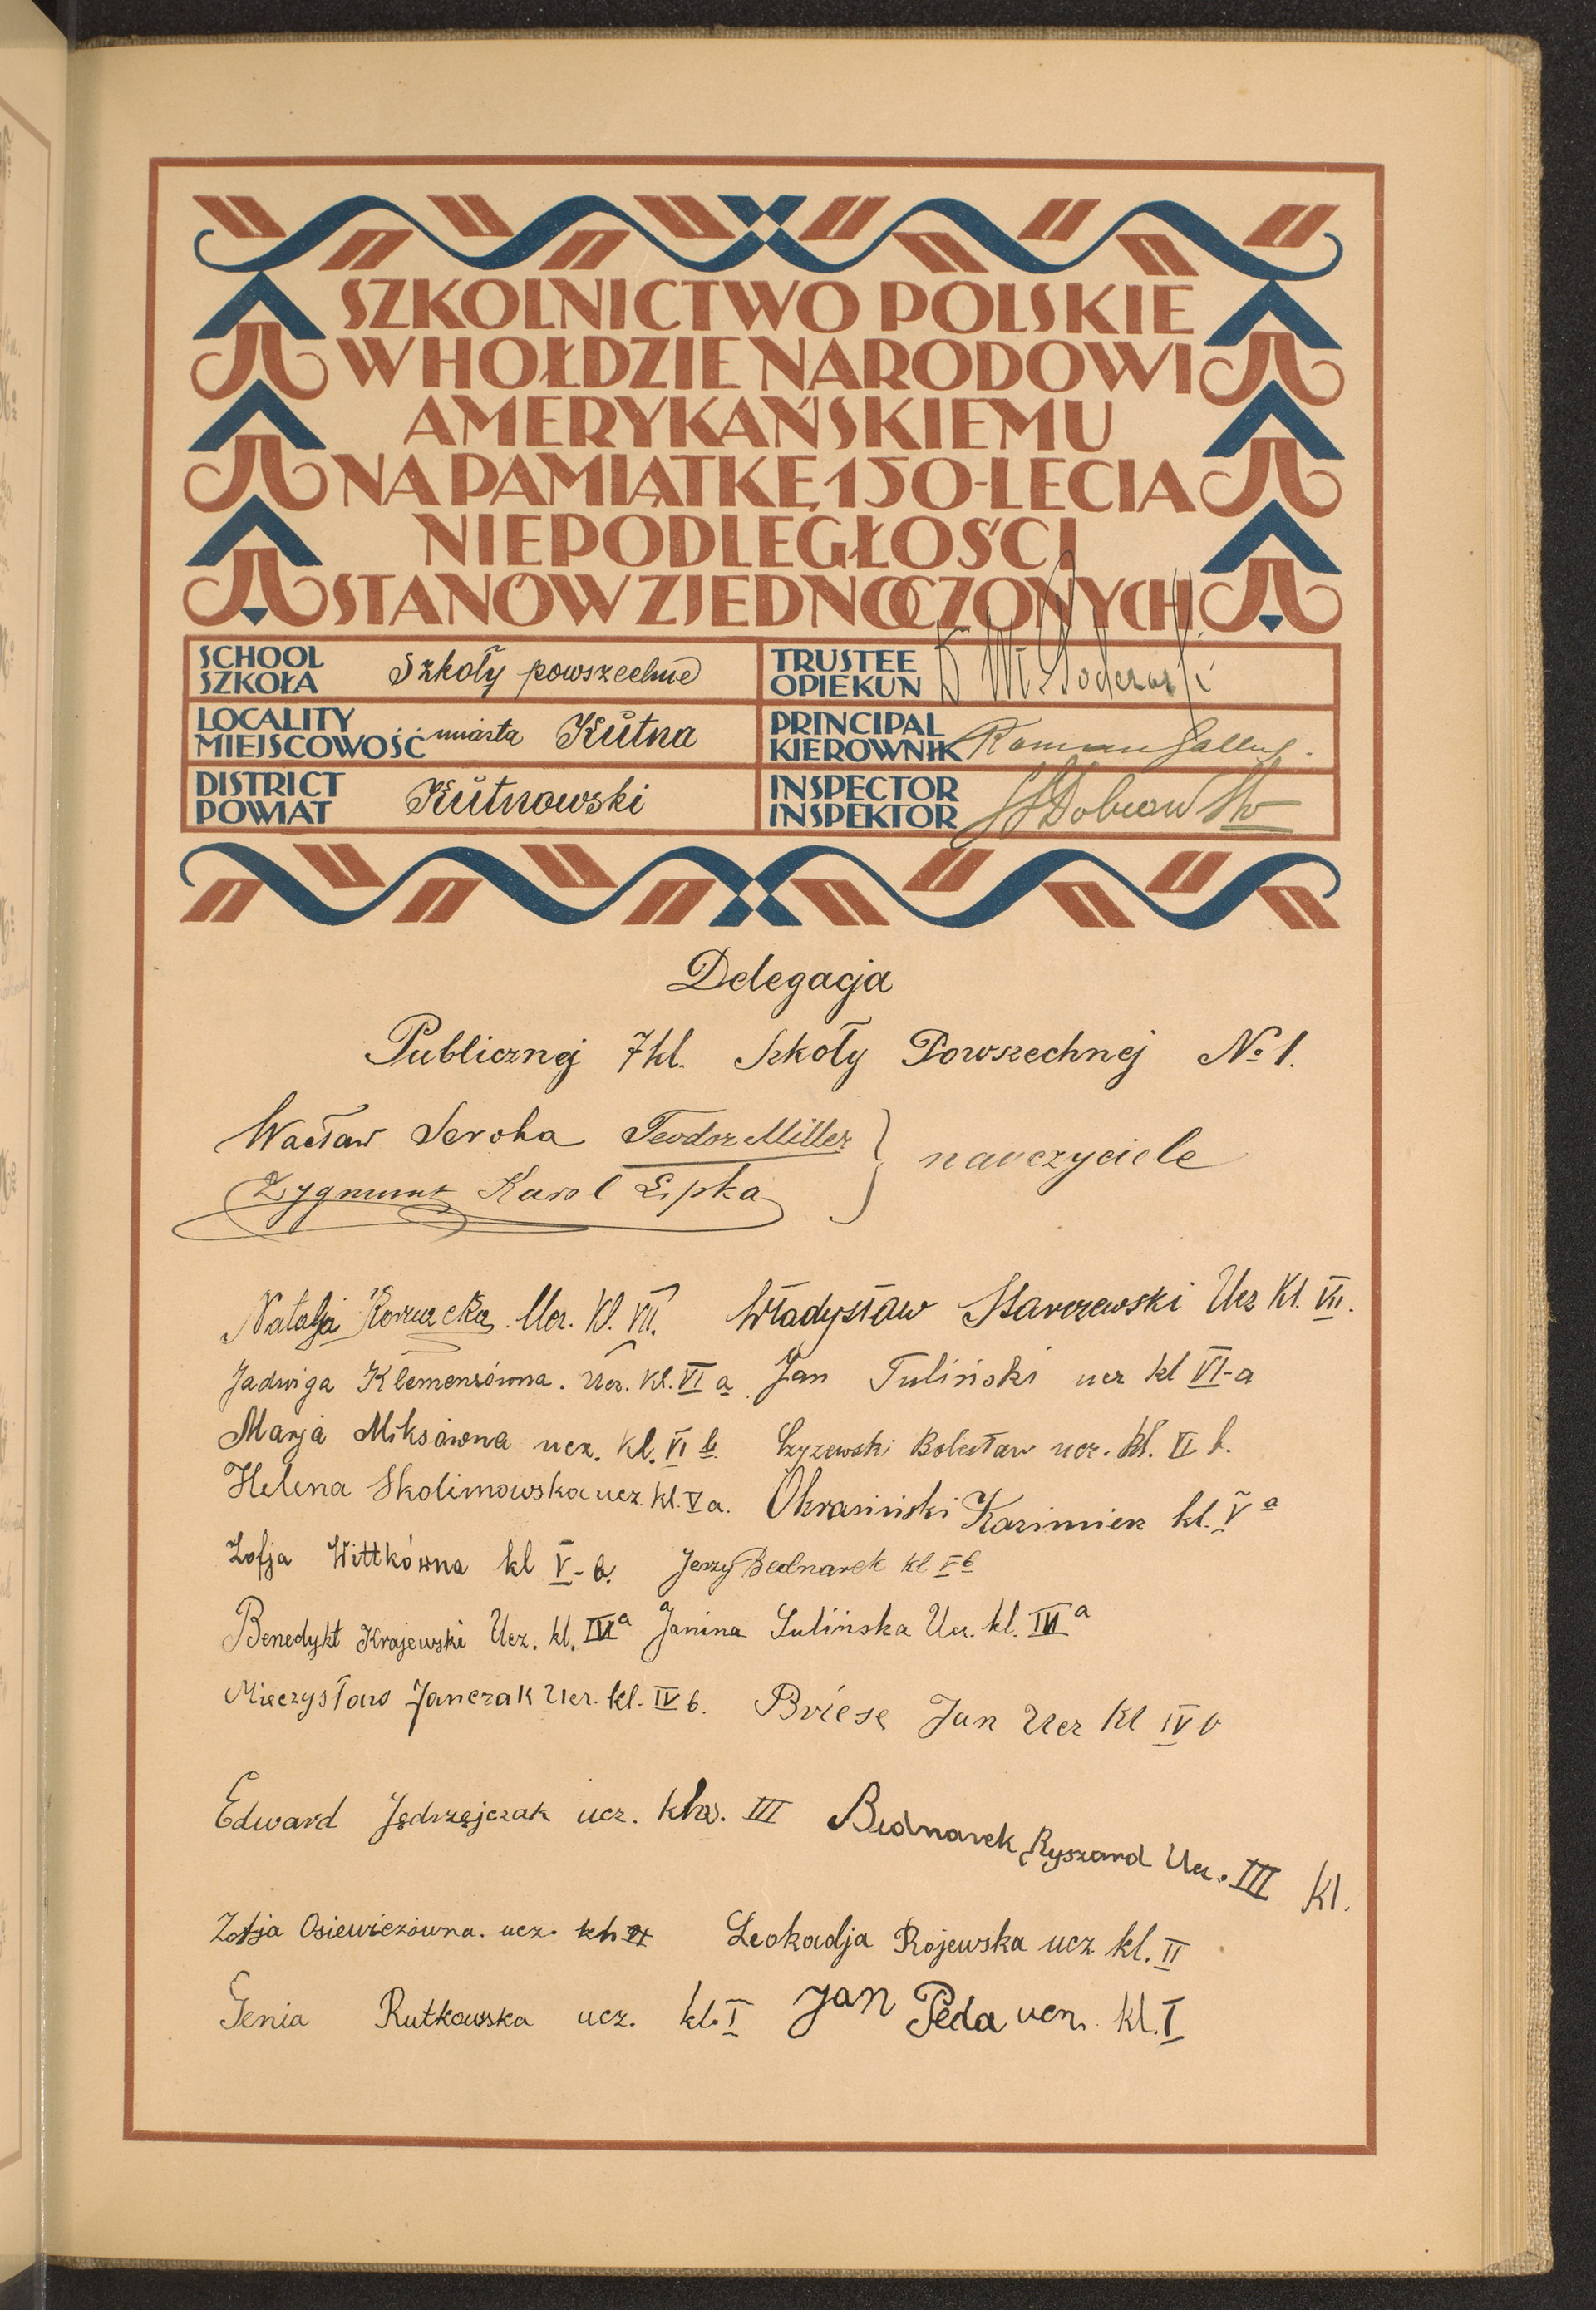 SZKOLNICTWO POLSKIE
W HOŁDZIE NARODOWI
AMERYKAŃSKIEMU
NA PAMIĄTKĘ 150-LECIA
NIEPODLEGŁOŚCI
STANÓW ZJEDNOCZONYCH
SCHOOL
SZKOŁA
Szkoły powszechne
TRUSTEE
OPIEKUN
LOCALITY
MIEJSCOWOŚĆ
miasta Kutna
PRINCIPAL
KIEROWNIK
Roman
DISTRICT
POWIAT
Kutnowski
INSPECTOR
INSPEKTOR
Delegacja
Publicznej 7 kl. Szkoły Powszechnej No 1.
Wacław Seroka Teodor Miller
Zygmunt Karol Lipka
nauczyciele
Natalja Ucz. Kl. VII. Władysław Starczewski Ucz Kl. VII.
Jadwiga Klemensówna. Ucz. Kl. VI a Jan Tuliński ucz kl VI-a
Marja Miksówna ucz. Kl. VI b. Czyzewski Bolesław ucz. kl. VI b.
Helena Skolimowska ucz. kl. V a. Okrasiński Kazimierz kl. V a
Zofja Wittkówna kl V-b. Jerzy Bednarek kl V b
Benedykt Krajewski Ucz. kl. IV a Janina Sulińska Ucz. kl. IV a
Mieczysław Janczak Ucz. kl. IV b. Briese Jan Ucz Kl IV b
Edward Jędrzejczak ucz. klas. III Bednarek Ryszard Ucz. III Kl.
Zofja Osiewiczówna. ucz. kl. II Leokadja Rojewska ucz kl. II
Genia Rutkowska ucz. kl. I Jan Peda ucz. kl. I